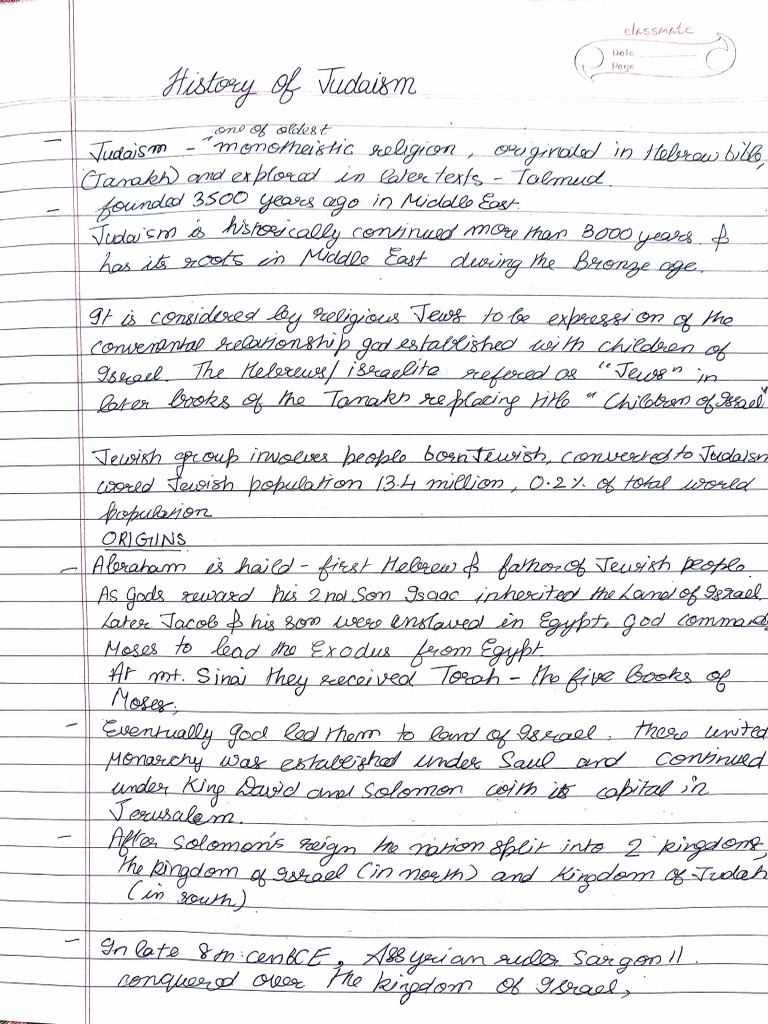 classmate
Date
Page
History of Judaism
one of oldest
- Judaism - monotheistic religion, originated in Hebrew bible,
(Tanakh) and explored in later texts - Talmud.
- founded 3500 years ago in Middle East.
Judaism is historically continued more than 3000 years &
has its roots in Middle East during the Bronze age.
It is considered by religious Jews to be expression of the
convenental relationship god established with children of
Israel. The Hebrews/ israelite refered as "Jews" in
later books of the Tanakh replacing title "Children of Israel"
Jewish group involves people born Jewish, converted to Judaism
world Jewish population 13.4 million, 0.2% of total world
population
ORIGIINS
- Abraham is haild - first Hebrew & father of Jewish people.
As Gods reward his 2nd Son Isaac inherited the Land of Israel.
Later Jacob & his son were enslaved in Egypt, god command
Moses to lead the Exodus from Egypt.
At mt. Sinai they received Torah - the five books of
Moses,
- Eventually god led them to land of Israel. there united
Monarchy was established under Saul and continued
under King David and Solomon with its capital in
Jerusalem.
- After Solomon's reign the nation split into 2 kingdoms,
the kingdom of Israel (in north) and kingdom of Judah
(in south)
- In late 8th cen BCE, Assyrian ruler Sargon II
conquered over the kingdom of Israel,